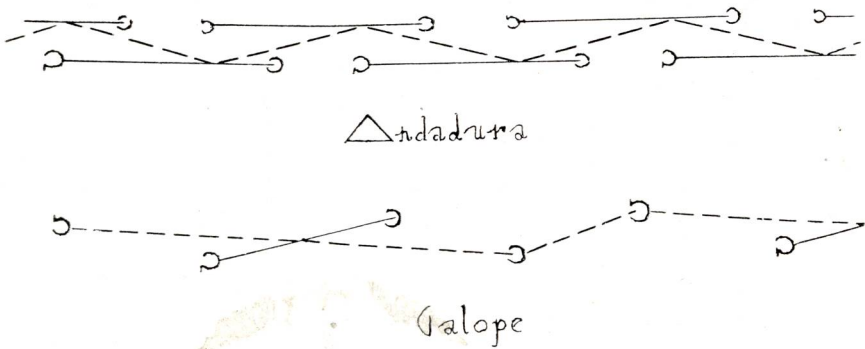 Andadura
Galope